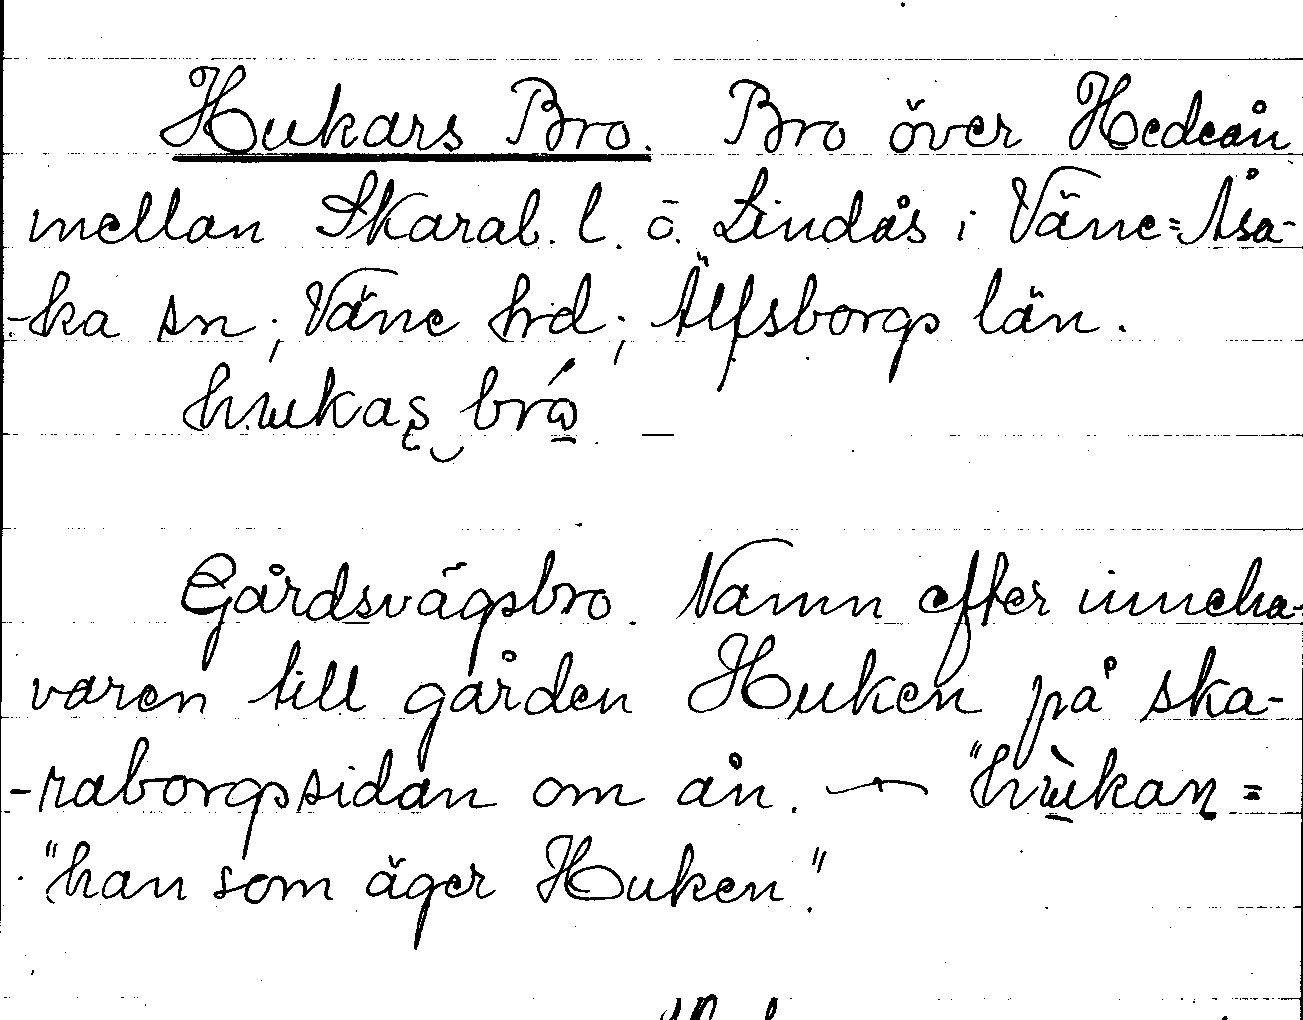 Hukars Bro. Bro över Hedeån
mellan Skarab. l. o. Lindås i Väne=Åsa-
-ka sn; Väne hrd; Älfsborgs län.
Gårdsvägsbro. Namn efter inneha-
varen till gården Huken på ska-
-raborgssidan om ån. —
"han som äger Huken."